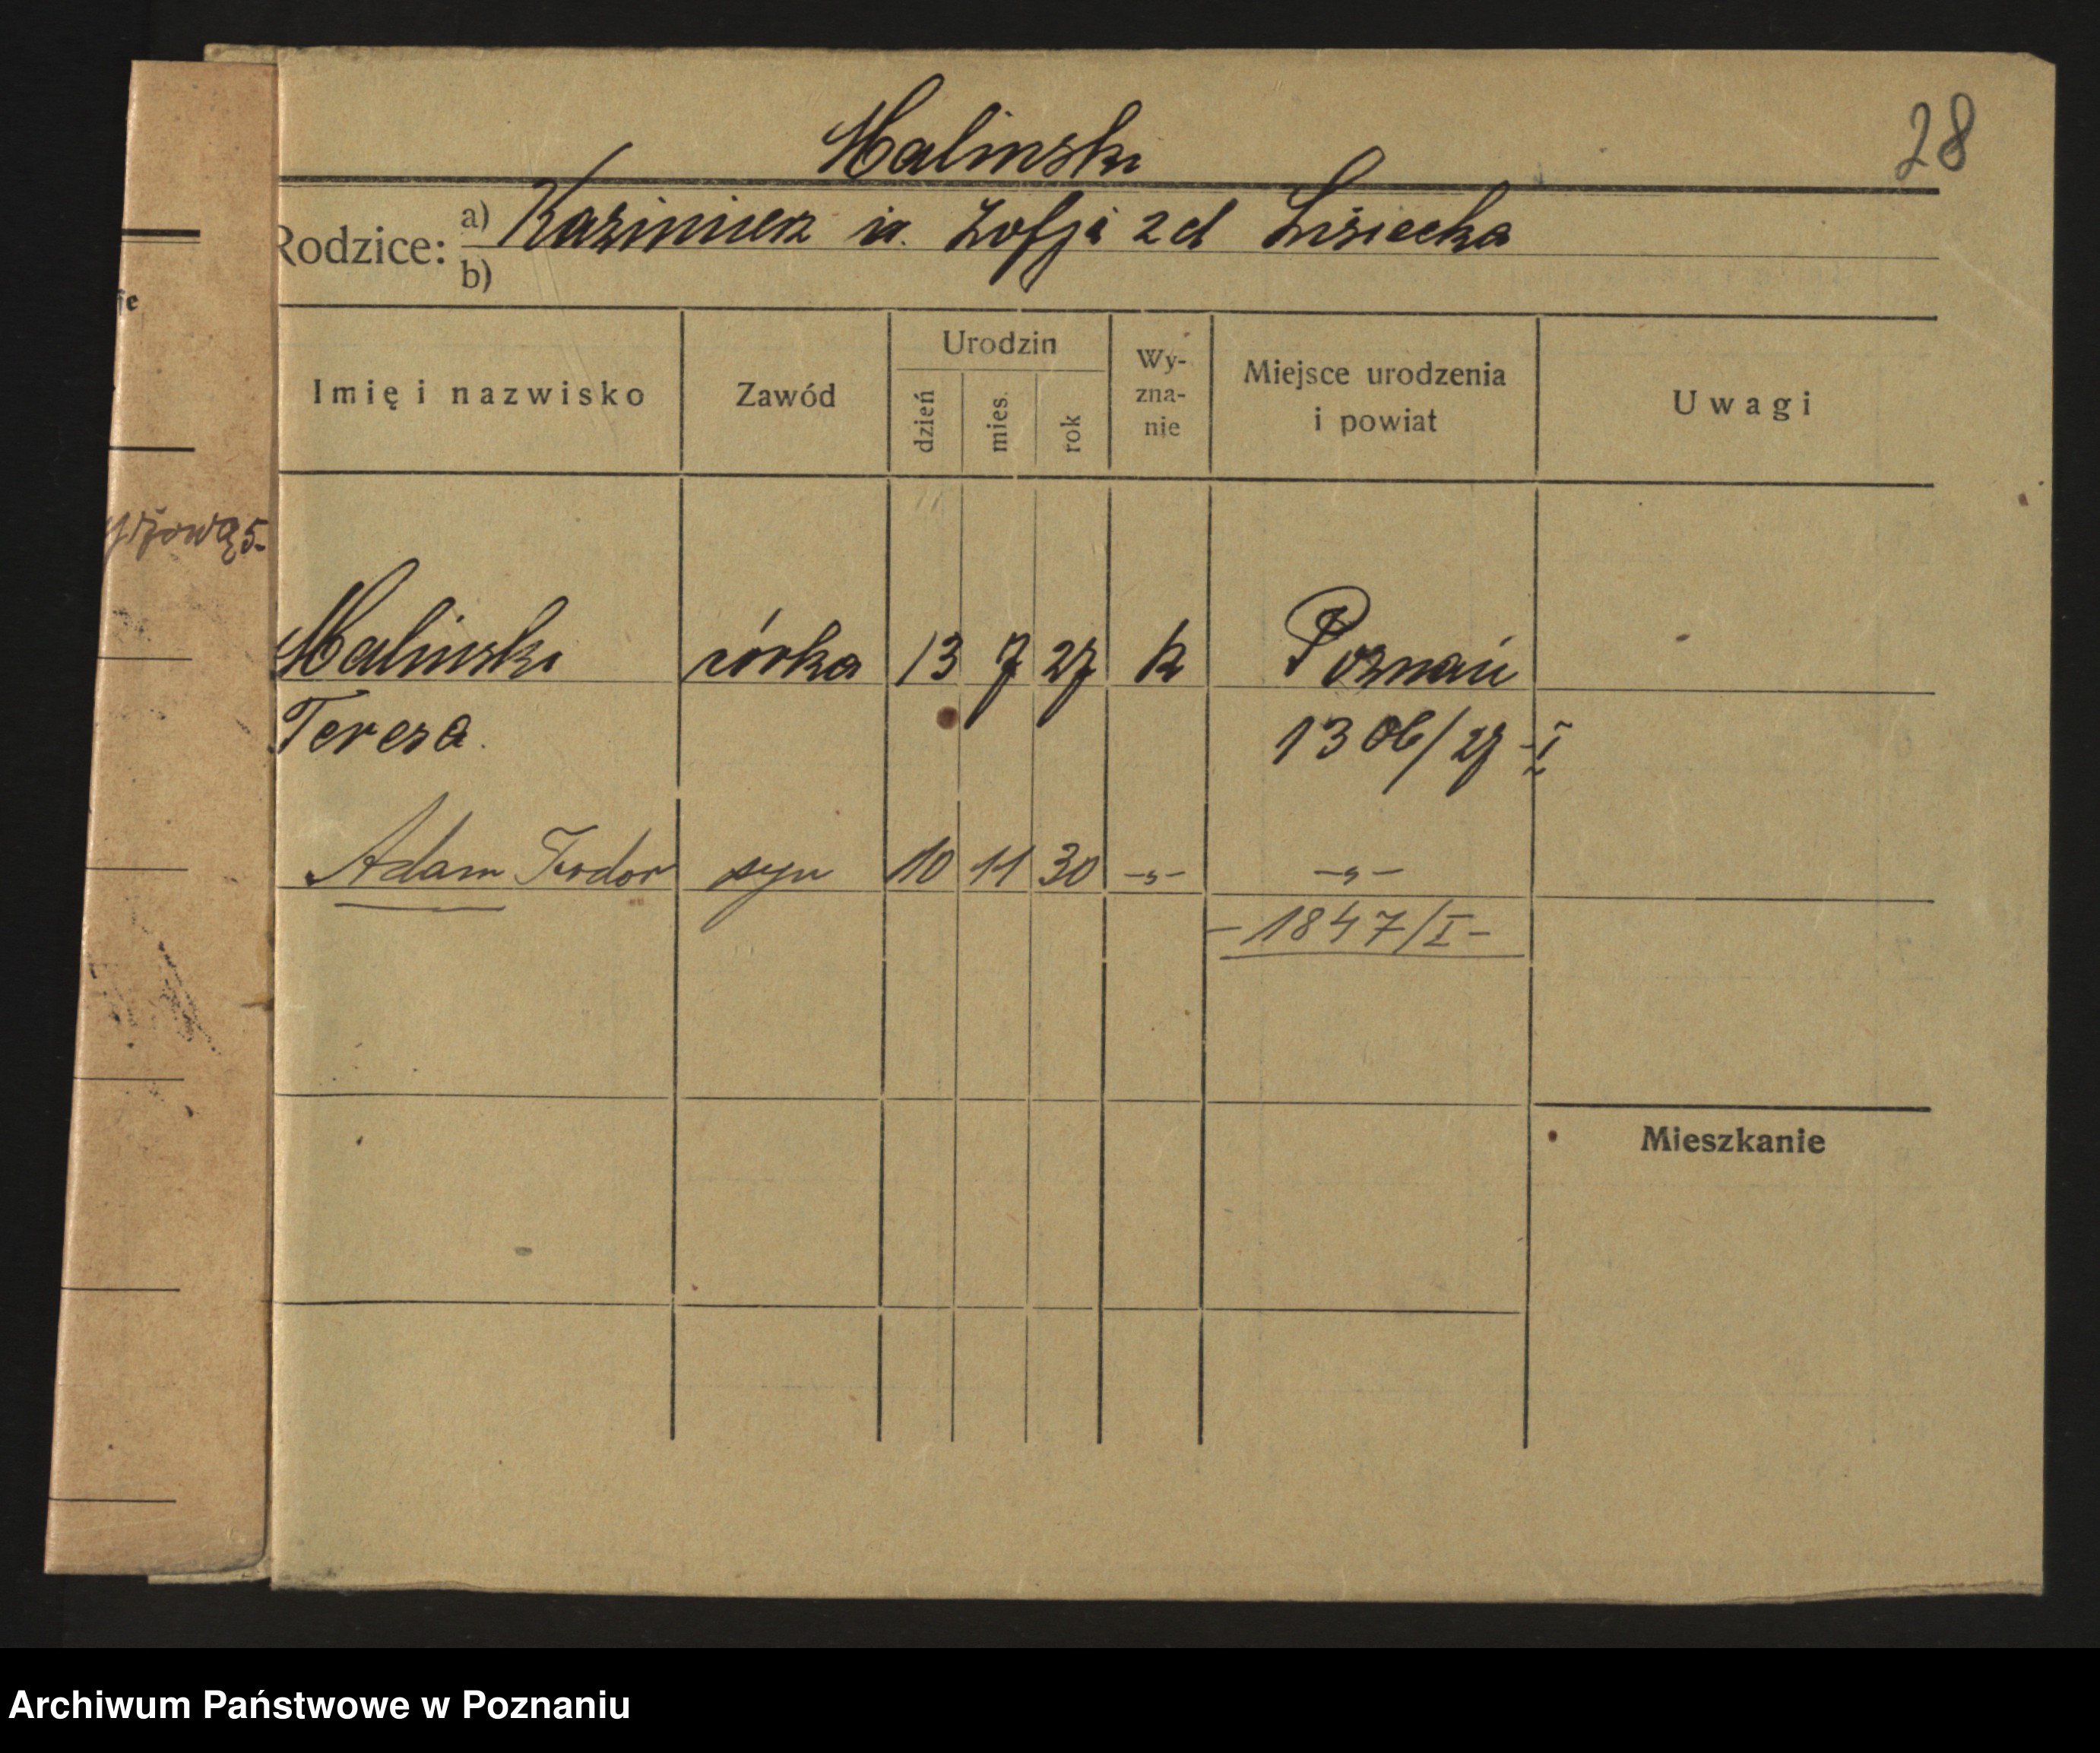 28
Malinski
Rodzice: a) Kazimierz u. Zofja zd Lisiecka
b)
Imię i nazwisko Zawód Urodzin dzień mies. rok Wy-zna-nie Miejsce urodzenia i powiat Uwagi
5.
Malinski córka 13 7 27 k Poznań
Teresa. 1306/27 - I
Adam Teodor syn 10 11 30 -„- -„-
- 1847/I -
Mieszkanie
Archiwum Państwowe w Poznaniu